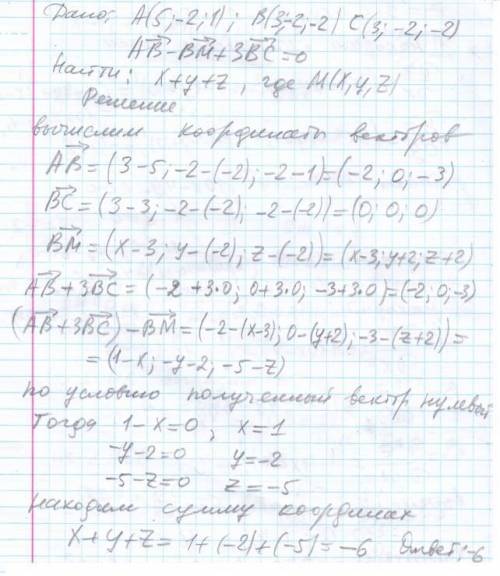 Дано: A(5;-2;1); B(3;-2;-2) C(3;-2;-2)
AB-BM+3BC=0
Найти: x+y+z, где M(x,y,z)
Решение
вычислим координаты векторов
AB=(3-5;-2-(-2);-2-1)=(-2;0;-3)
BC=(3-3;-2-(-2);-2-(-2))=(0;0;0)
BM=(x-3;y-(-2);z-(-2))=(x-3;y+2;z+2)
AB+3BC=(-2+3·0;0+3·0;-3+3·0)=(-2;0;-3)
(AB+3BC)-BM=(-2-(x-3);0-(y+2);-3-(z+2))=
=(1-x;-y-2;-5-z)
по условию полученный вектор нулевой
Тогда 1-x=0, x=1
-y-2=0 y=-2
-5-z=0 z=-5
находим сумму координат
x+y+z=1+(-2)+(-5)=-6 Ответ:-6